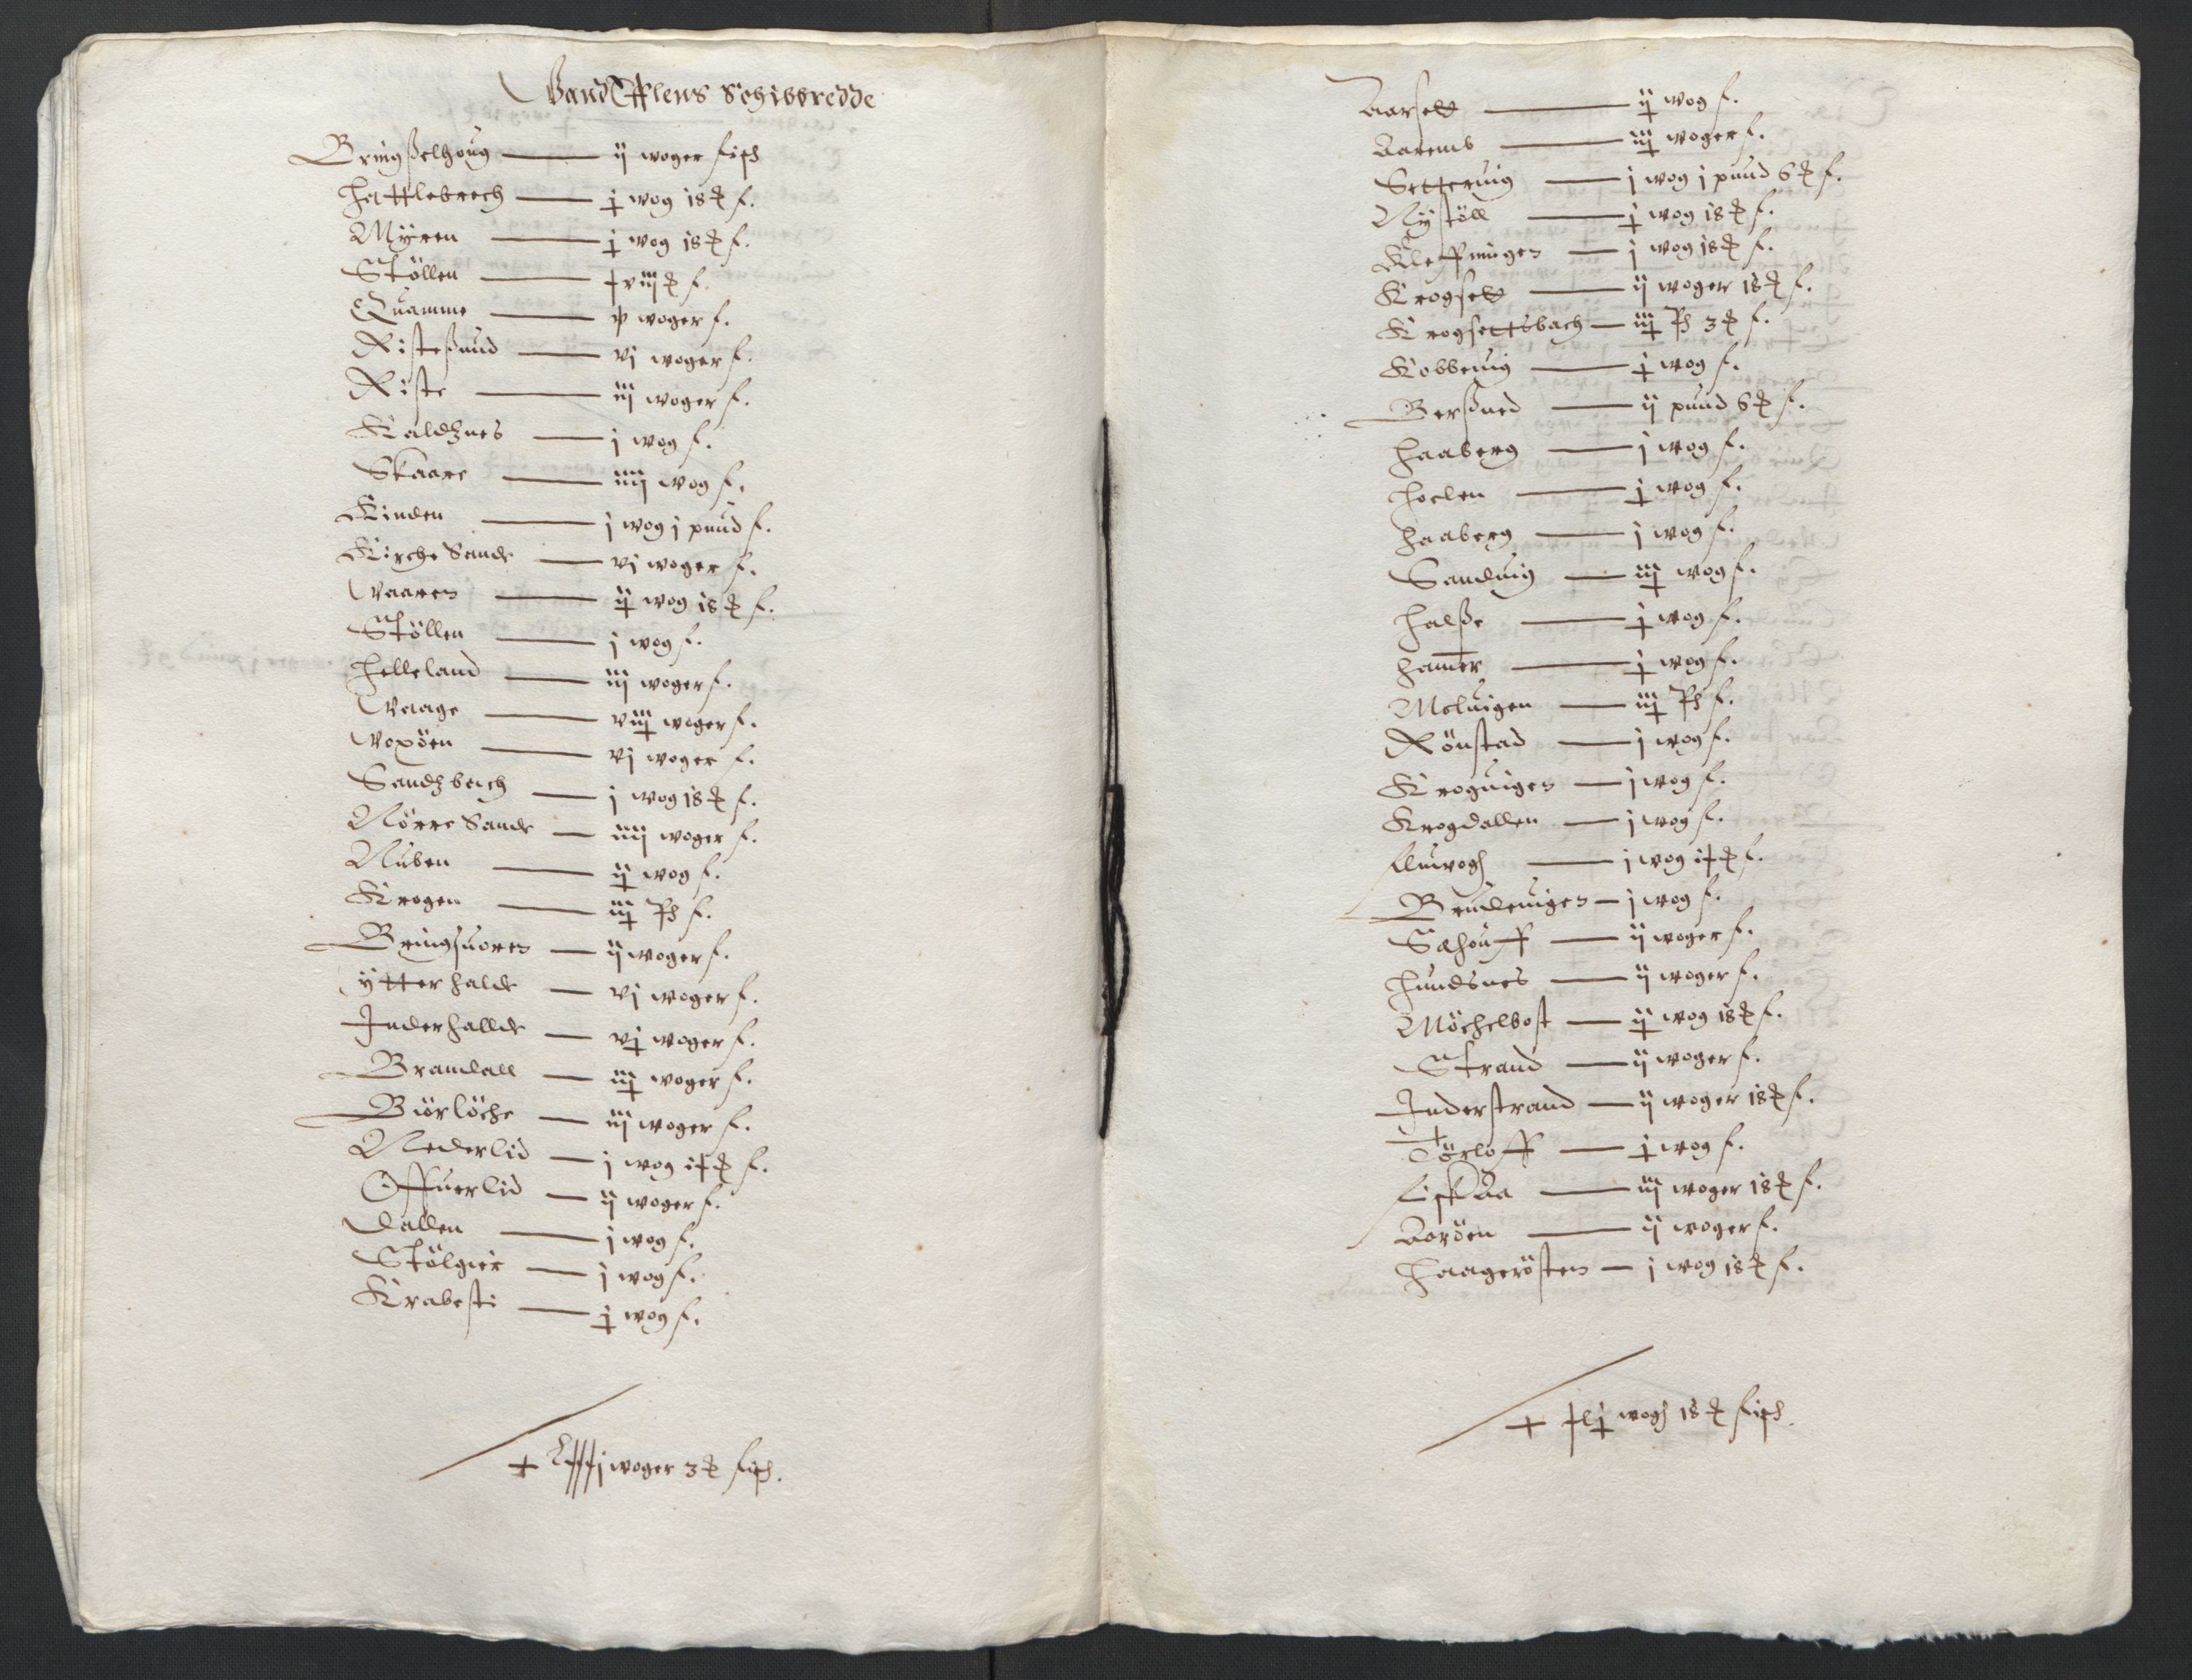 Vandelffuens Schibbredde
Bringßelhoug — ij woger fisch
Hattlebrech — j wog 18 ℔ f.
Myren — j wog 18 ℔ f.
Stöllen — xviij ℔ f.
Quamme — v woger f.
Risteßund — vj woger f.
Riste — iij woger f.
Kaldznes — j wog f.
Skaare — iiij wog f.
Kinden — j wog j pund f.
Kirche Sande — vj woger f.
Vaaren — ij wog 18 ℔ f.
Stöllen — j wog f.
Helleland — iij woger f.
Vaage — viij woger f.
Voxöen — vj woger f.
Sandzbach — j wog 18 ℔ f.
Nörre Sande — iiij woger f.
Nuben — ij wog f.
Krogen — iij Ph f.
Bringsuoren — ij woger f.
Ytterhalde — vj woger f.
Inderhallde — vj woger f.
Bramdall — iij woger f.
Biörlöche — iij woger f.
Nederlid — j wog f.
Offuerlid — ij woger f.
Dallen — j wog f.
Stölgier — j wog f.
Krabesti — j wog f.
woger 3 ℔ fisch.
Aarsett — ij wog f.
Aaremb — iij woger f.
Setteruig — j wog j pund 6 ℔ f.
Nÿstöll — j wog 18 ℔ f.
Kleffuingen — j wog 18 ℔ f.
Krogsett — ij woger 18 ℔ f.
Krogsettsbach — iij Ph 3 ℔ f.
Kobbeuig — j wog f.
Berßned — ij pund 6 ℔ f.
Haaberg — j wog f.
Hoelen — j wog f.
Haaberg — j wog f.
Sanduig — iij wog f.
Halße — j wog f.
Hamer — j wog f.
Meluigen — iij Ph f.
Rönstad — j wog f.
Kroguigen — j wog f.
Krogdallen — j wog f.
Fluuogh — j wog f.
Brudeuigen — j wog f.
Sæhouff — ij woger f.
Hundsnes — ij woger f.
Möchelbost — ij wog 18 ℔ f.
Strand — ij woger f.
Inderstrand — ij woger 18 ℔ f.
Törloff — j wog f.
Fiskaa — iij woger 18 ℔ f.
Aaröen — ij woger f.
Haagerösten — j wog 18 ℔ f.
xlj wogh 18 ℔ fisch.